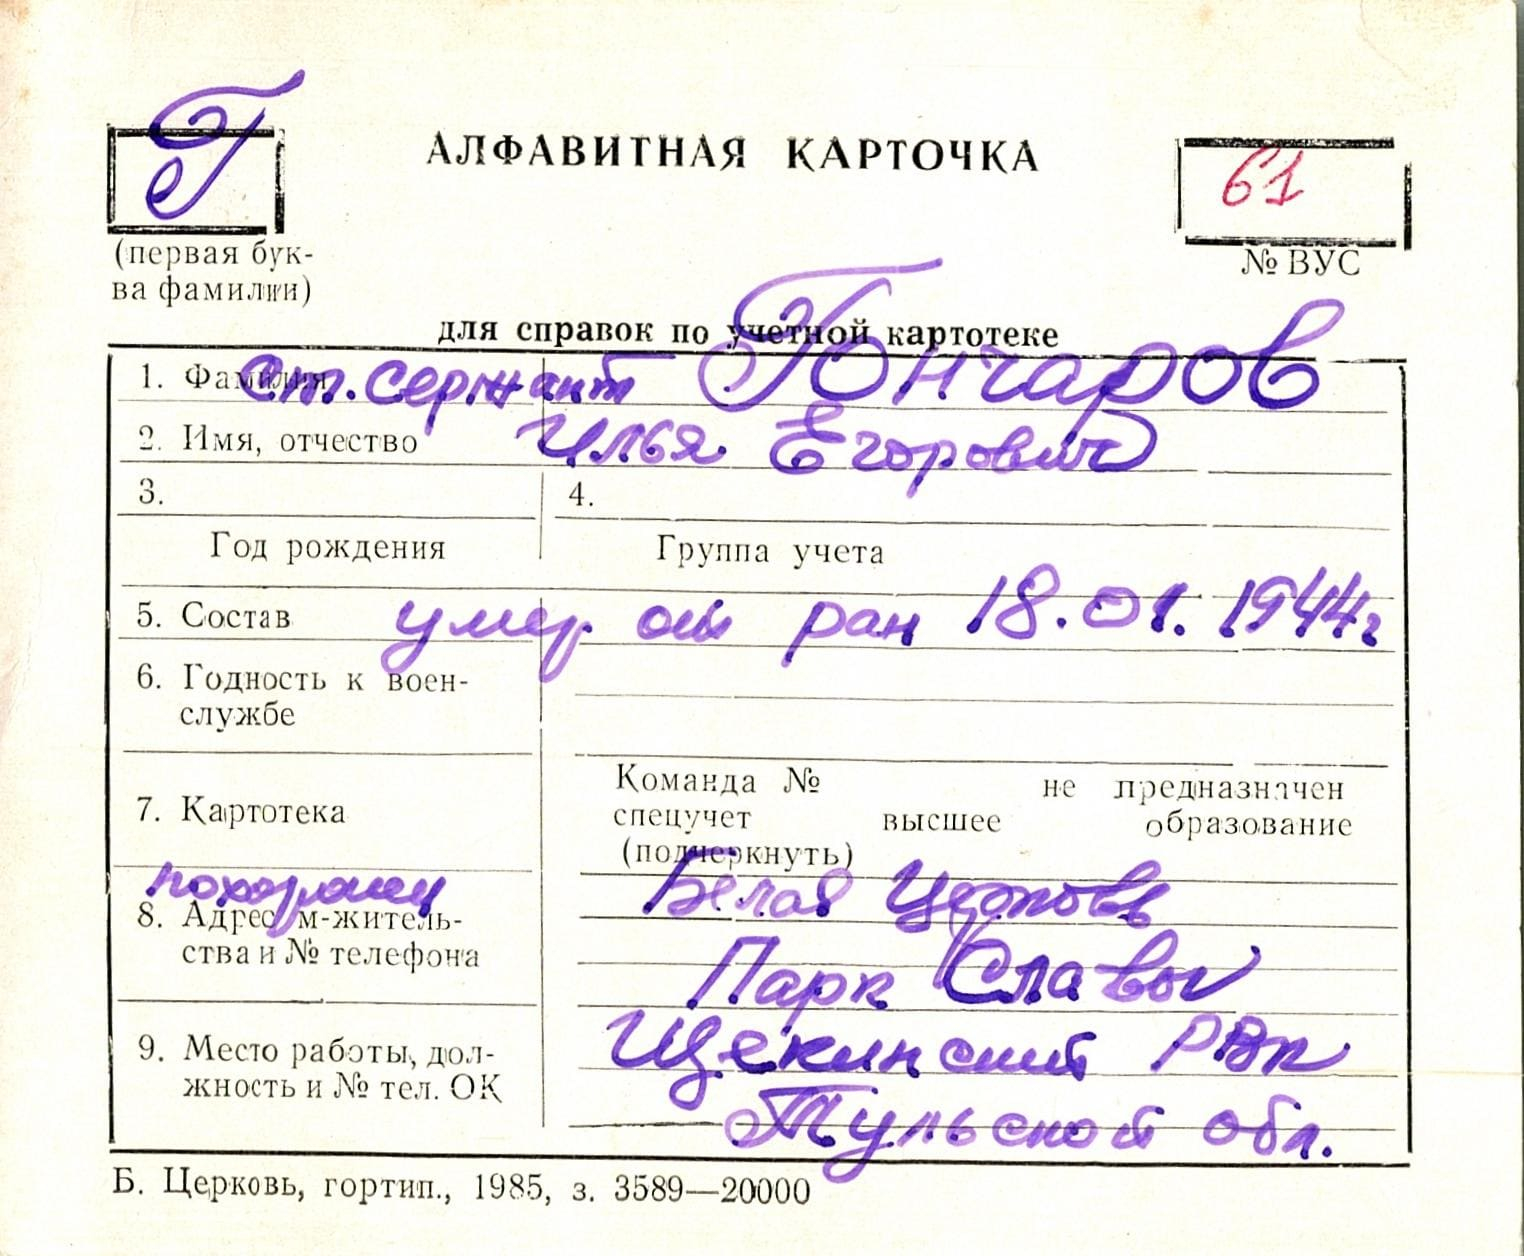 Г
АЛФАВИТНАЯ КАРТОЧКА
61
(первая бук-
ва фамилии)
№ ВУС
для справок по учетной картотеке
1. Фамилия ст. сержант Гончаров
2. Имя, отчество Илья Егорович
3. 4.
Год рождения Группа учета
5. Состав умер от ран 18.01.1944г
6. Годность к воен-
службе
Команда № не предназначен
7. Картотека
спецучет высшее образование
(подчеркнуть)
похоронен Белая Церковь
8. Адрес м-житель-
ства и № телефона
Парк Славы
9. Место работы, дол-
жность и № тел. ОК
Щекинский РВК
Тульской обл.
Б. Церковь, гортип., 1985, з. 3589—20000